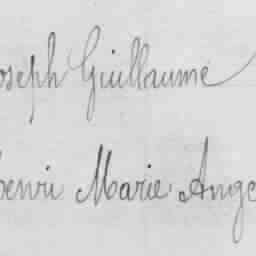 oseph Guillaume
henri Marie Ange